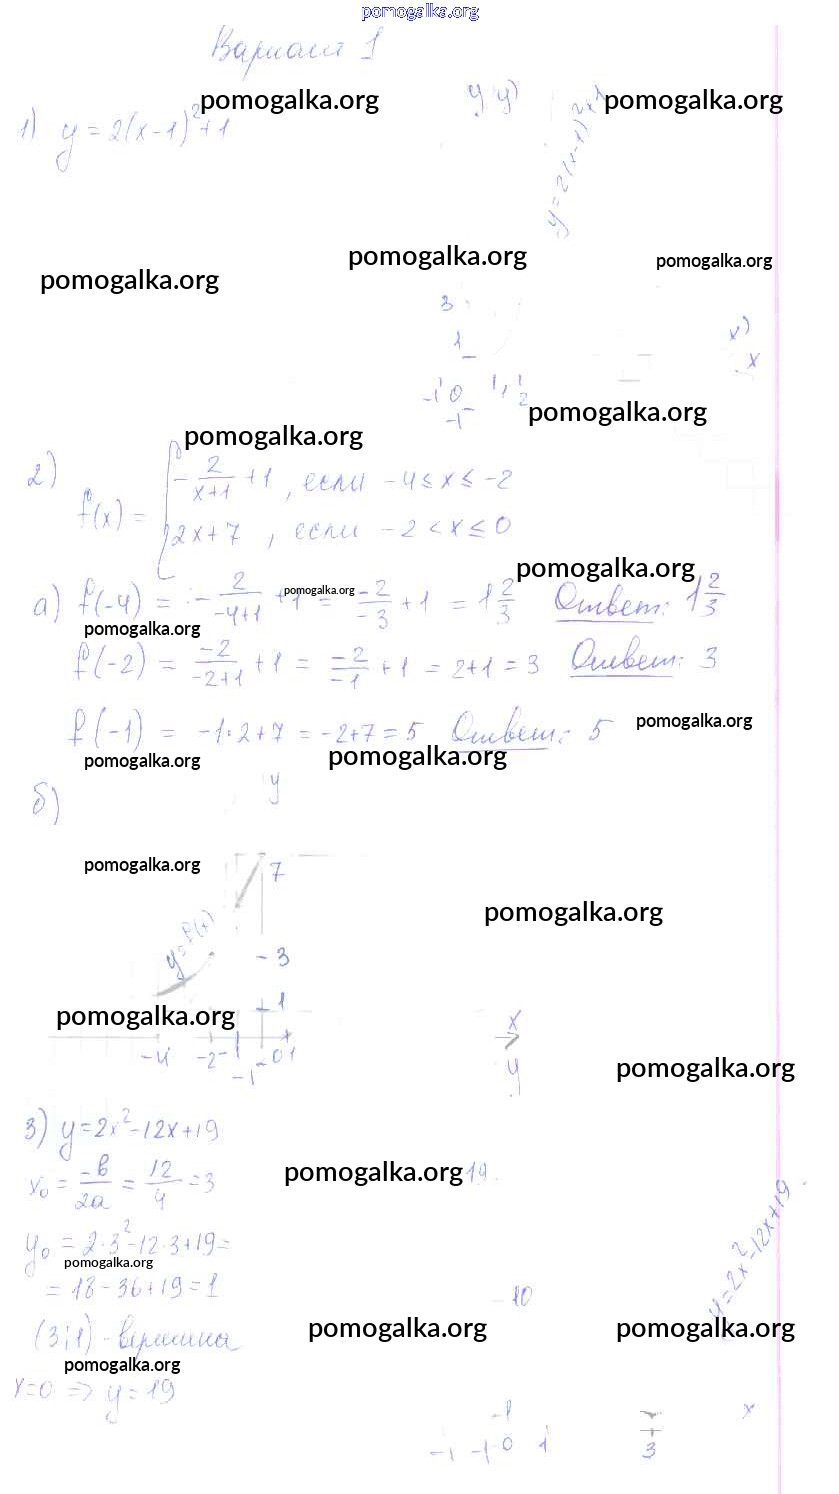 pomogalka.org
Вариант 1
pomogalka.org
y y)
pomogalka.org
1) y = 2(x-1)²+1
y = 2(x-1)²+1
pomogalka.org
pomogalka.org
pomogalka.org
3
1
x)
x
-1 0 1 2
-1
pomogalka.org
pomogalka.org
2) f(x) = { -2/(x+1) + 1, если -4 ≤ x ≤ -2
2x+7, если -2 < x ≤ 0
pomogalka.org
а) f(-4) = - 2/(-4+1) +1 = -2/-3 + 1 = 1 2/3 Ответ: 1 2/3
pomogalka.org
pomogalka.org
f(-2) = -2/(-2+1) + 1 = -2/-1 + 1 = 2+1 = 3 Ответ: 3
f(-1) = -1·2+7 = -2+7 = 5 Ответ: 5
pomogalka.org
pomogalka.org
pomogalka.org
б)
y
7
pomogalka.org
pomogalka.org
y=f(x)
3
1
pomogalka.org
x
-4 -2 -1 0 1
y
pomogalka.org
3) y=2x²-12x+19
x₀ = -b/2a = 12/4 = 3
pomogalka.org
19
y₀ = 2·3²-12·3+19=
pomogalka.org
= 18-36+19=1
y=2x²-12x+19
10
(3;1) - вершина
pomogalka.org
pomogalka.org
pomogalka.org
x=0 => y=19
1
x
-1 0 1
3